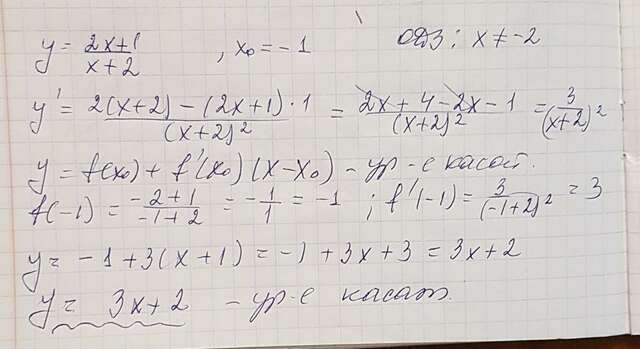 y = (2x+1)/(x+2) , x₀ = -1 ОДЗ: x ≠ -2
y' = (2(x+2) - (2x+1)·1)/(x+2)² = (2x + 4 - 2x - 1)/(x+2)² = 3/(x+2)²
y = f(x₀) + f'(x₀)(x-x₀) - ур-е касат.
f(-1) = (-2+1)/(-1+2) = -1/1 = -1 ; f'(-1) = 3/(-1+2)² = 3
y = -1 + 3(x+1) = -1 + 3x + 3 = 3x+2
y = 3x+2 - ур-е касат.